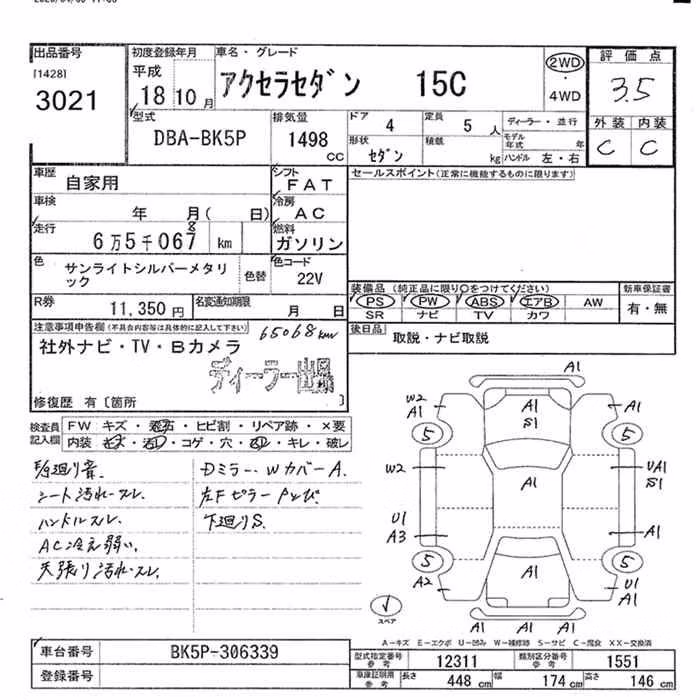 出品番号 初度登録年月 車名・グレード 2WD 評価点
[1428] 平成 アクセラセダン 15C ・ 3.5
3021 18 10月 4WD
型式 排気量 ドア 4 定員 5人 ディーラー・並行 外装 内装
DBA-BK5P 1498 cc 形状 セダン 積載 kg モデル年式 年 C C
ハンドル 左・右
車歴 自家用 シフト FAT セールスポイント(正常に機能するものに限ります)
車検 年 月( 日) 冷房 AC
走行 6万5千067 8 km 燃料 ガソリン
色 サンライトシルバーメタリック 色替 色コード 22V
装備品 (純正品に限り○をつけてください) 新車保証書
PS PW ABS エアB AW 有・無
SR ナビ TV カワ
R券 11,350円 名変通知期限 月 日
後日品 取説・ナビ取説
注意事項申告欄(不具合内容等は具体的に記入して下さい) 65068km
社外ナビ・TV・Bカメラ
ディーラー出場
修復歴 有〔箇所 〕
検査員記入欄 FW キズ・飛石・ヒビ割・リペア跡・×要
内装 キズ・汚れ・コゲ・穴・スレ・キレ・破レ
シート汚れ・スレ.
ハンドルスレ.
AC冷え弱い.
天張り汚れ・スレ.
Dミラー・WカバーA.
左Fピラー
下廻りS.
A1
W2 A1 A1 A1
S1
5 5
W2 A1 UA1
S1
U1 A1
A3
5 5
A2 A1 U1
A1
A1 A1
スペア
A-キズ E-エクボ U-凹み W-補修跡 S-サビ C-腐食 XX-交換済
車台番号 BK5P-306339
型式指定番号 参考 12311 類別区分番号 参考 1551
登録番号
車庫証明用 参考 長さ 448 cm 幅 174 cm 高さ 146 cm